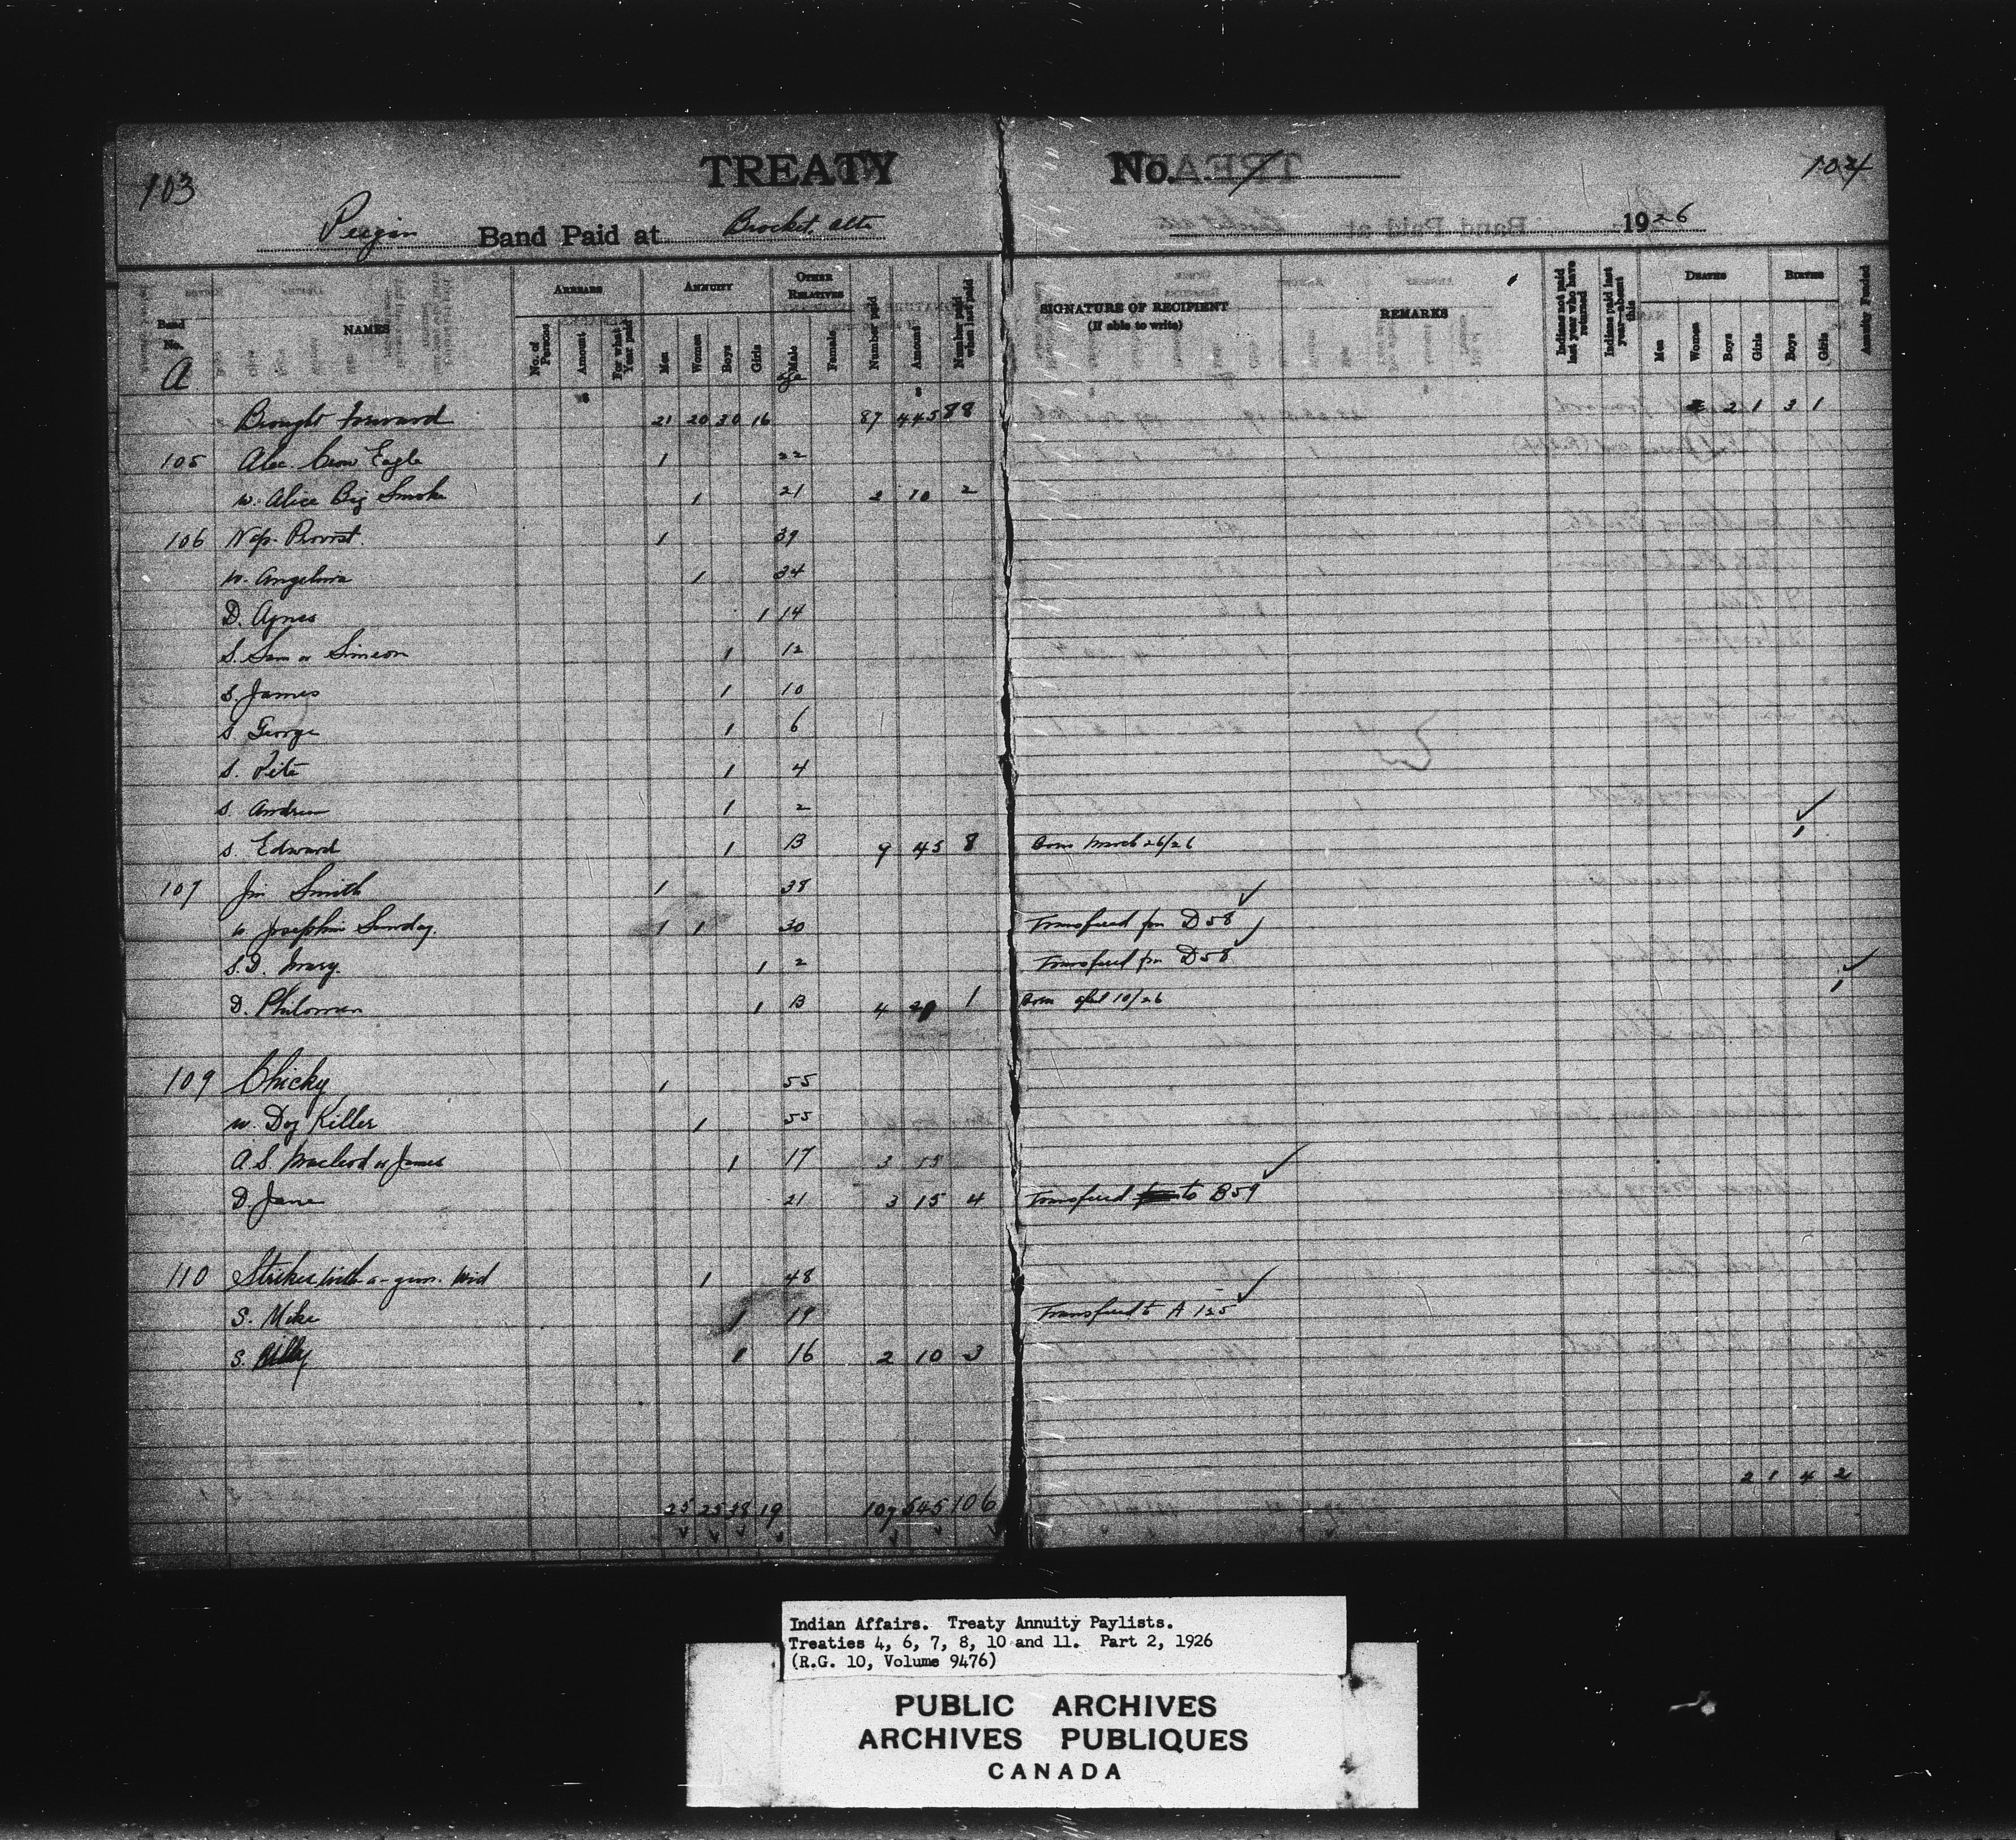 103
TREATY No. 7
104
Peigan Band Paid at Brocket, Alta 1926
Band No. NAMES ARREARS ANNUITY OTHER RELATIVES Number paid Amount Number paid when last paid SIGNATURE OF RECIPIENT (If able to write) REMARKS Indians not paid last year who have returned Indians paid last year—absent this DEATHS BIRTHS Annuity Funded
No. of Persons Amount For what Year paid Men Women Boys Girls Male Female Men Women Boys Girls Boys Girls
A
Brought forward 21 20 30 16 87 445 88 2 1 3 1
105 Alec. Crow Eagle 1 22
w. Alice Big Smoke 1 21 2 10 2
106 Nap. Provost. 1 39
w. Angelina 1 34
D. Agnes 1 14
S. Sam or Simeon 1 12
S. James 1 10
S. George 1 6
S. Pete 1 4
S. Andrew 1 2
S. Edward 1 B 9 45 8 Born March 26/26 1
107 Jim Smith 1 38
w Josephine Sunday. 1 1 30 Transfered from D58
S.D. Mary. 1 2 Transfered from D58
D. Philomen 1 B 4 20 1 Born April 10/26 1
109 Chicky 1 55
w. Dog Killer 1 55
A S. Macleod or James 1 17 3 15
D. Jane 21 3 15 4 Transfered to B59
110 Strikes with-a-gun. Wid 1 48
S. Mike 1 19 Transfered to A 125
S. Billy 1 16 2 10 3
2 1 4 2
25 25 38 19 107 545 106
Indian Affairs. Treaty Annuity Paylists.
Treaties 4, 6, 7, 8, 10 and 11. Part 2, 1926
(R.G. 10, Volume 9476)
PUBLIC ARCHIVES
ARCHIVES PUBLIQUES
CANADA